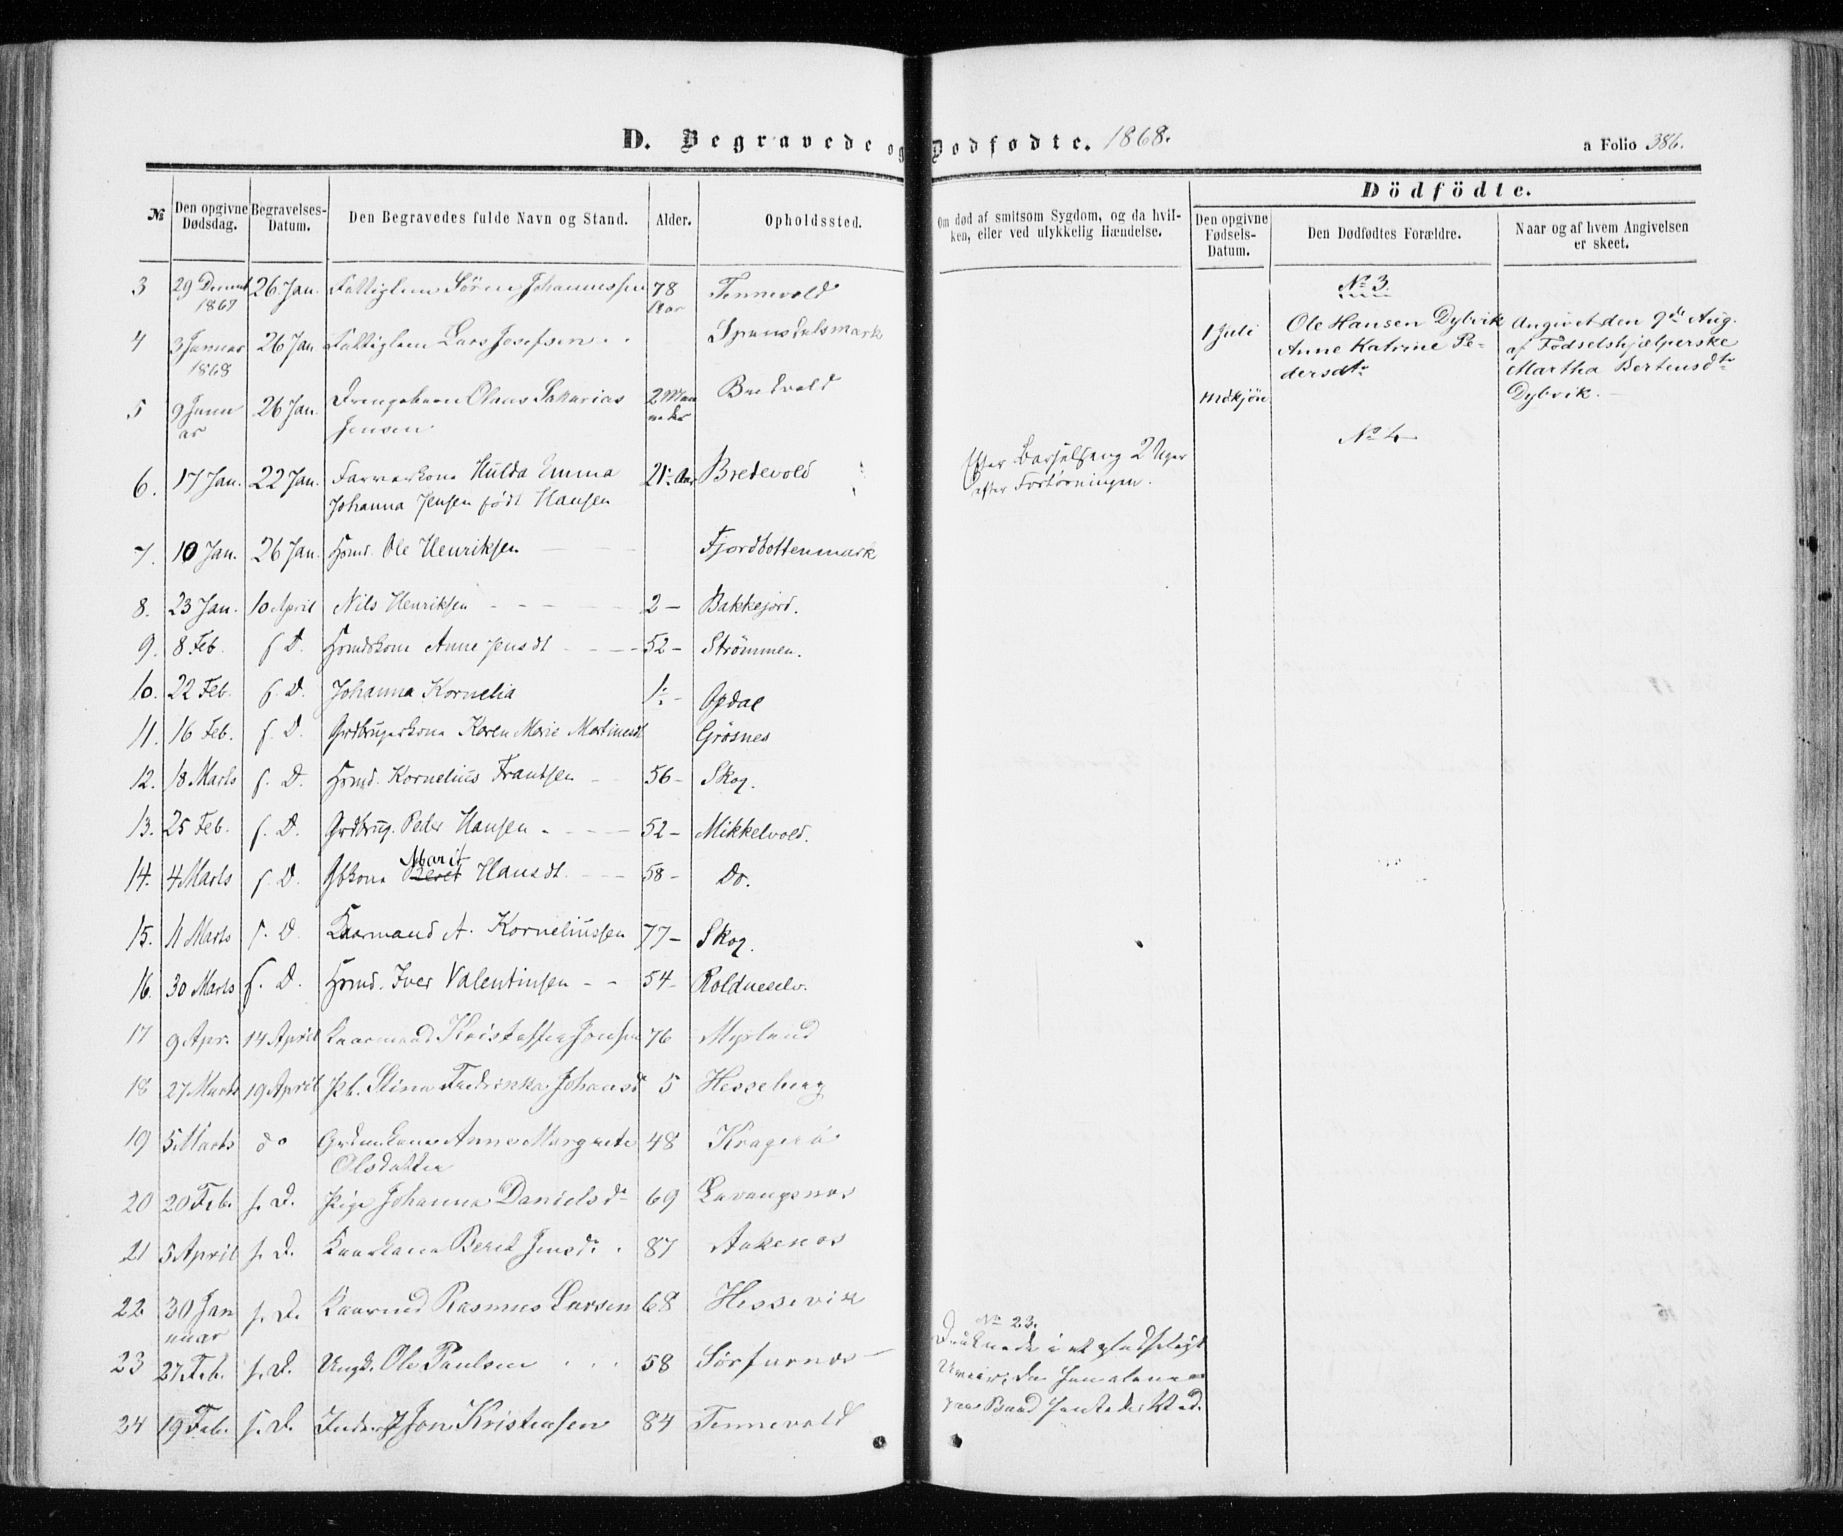 D. Begravede og Dødfødte. 1868.
a Folio 386.
№
Den opgivne Dødsdag.
Begravelses-Datum.
Den Begravedes fulde Navn og Stand.
Alder.
Opholdssted.
Om død af smitsom Sygdom, og da hvilken, eller ved ulykkelig Hændelse.
Dödfödte.
Den opgivne Fødsels-Datum.
Den Dødfødtes Forældre.
Naar og af hvem Angivelsen er skeet.
3 29 1867 26 Jan. Sören Johannessen 78 Aar Tennevold
4 3 Januar 1868 26 Jan. Lars Josefsen Spansdalsmark
5 9 Januar 26 Jan. Drengebarn Olaus Sakarias 2 Maaneder Bredvold
Jensen.
6. 17 Jan. 22 Jan. Hulda Emma 21 Aar Bredevold
Johanna Jensen født Hansen
Efter Barselseng 2 Uger
efter Forløsningen.
7. 10 Jan. 26 Jan. Hsmd. Ole Henriksen Fjordbottenmark
8. 23 Jan. 10 April Nils Henriksen 2 - Bakkejord.
9. 8 Feb. s. D. Hsmdskone Anne Jensdt 52 - Strømmen.
10. 22 Feb. s. D. Johanna Kornelia 1 - Opdal
11. 16 Feb. s. D. Grdbrugerkone Karen Marie Martinsdt Grøsnes
12. 18 Marts s. D. Hsmd. Kornelius Frantsen 56 - Skog.
13. 25 Feb. s. D. Grdbrug. Peder Hansen 52 - Mikkelvold.
14. 4 Marts s. D. Gbkone Marit Hansdt. 58 - Do.
15. 11 Marts s. D. Kaarmand A. Korneliussen 77 - Skog.
16. 30 Marts s. D. Hsmd. Iver Valentinsen 54 - Roldneselv.
17 9 Apr. 14 April Kaarmand Kristoffer Jonsen 76 Myrland
18 27 Marts 19 April Pb. Stina Fredrikka Johansd 5 Hesseberg
19 5 Marts do Anne Margrete 48 Kragerø
Olsdatter
20 20 Feb. s. D. Pige Johanna Danielsd 69 Lavangsnæs
21 5 April s. D. Kaarkone Berit Jensd. 87 Aakenæs
22 30 Januar s. D. Kaarmd Rasmus Larsen 68 Hessevik
23 27 Feb. s. D. Ungk. Ole Paulsen 58 Sörfurnæs
№ 23.
Druknede i et pludseligt
Uveir, da han alene
paa Baad
24 19 Feb. s. D. Jon Kristensen 84 Tennevold
№ 3.
1 Juli
Mdkjön
Ole Hansen Dybvik
Anne Katrine Pe-
dersdtr
Angivet den 9de Aug.
af Fødselshjælperske
Martha Bertensdtr
Dybvik.
№ 4